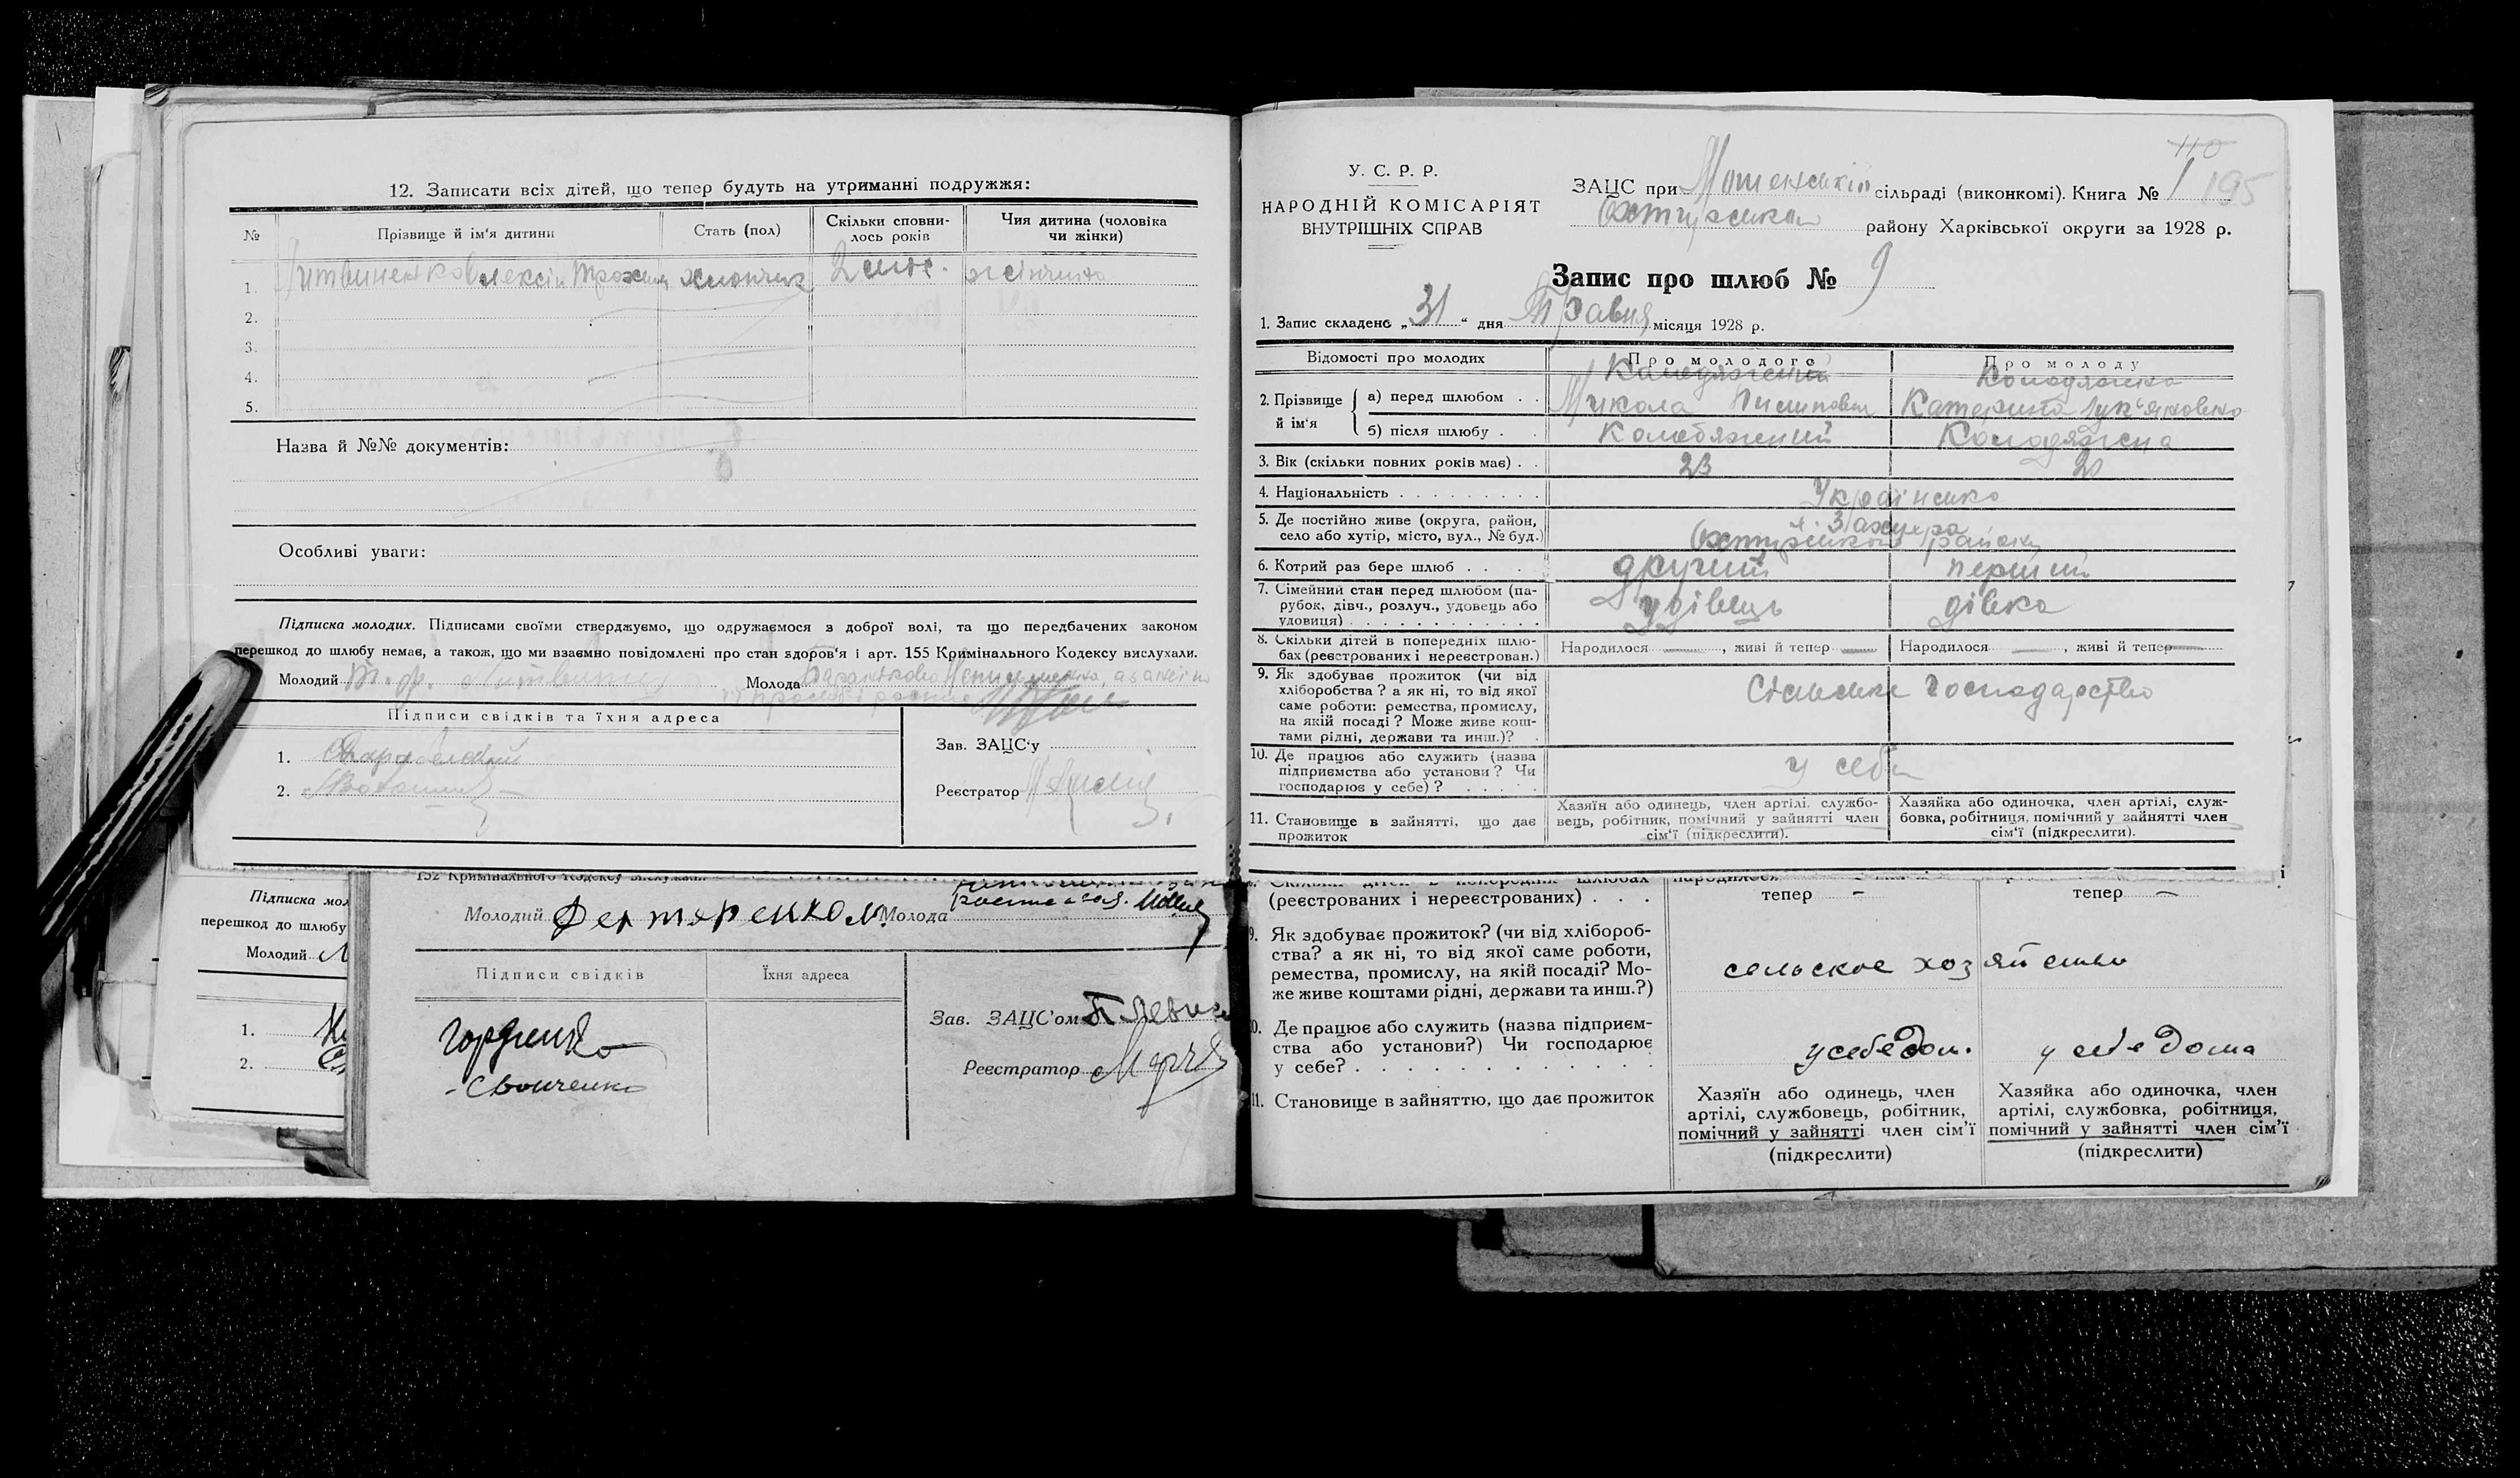 12. Записати всіх дітей, що тепер будуть на утриманні подружжя:
№ Прізвище й ім'я дитини Стать (пол) Скільки сповни-
лось років Чия дитина (чоловіка
чи жінки)
1. Литвиненко Олексій хлопчик 2 жінчина
2.
3.
4.
5.
Назва й №№ документів:
Особливі уваги:
Підписка молодих. Підписами своїми стверджуємо, що одружаємося з доброї волі, та що передбачених законом
перешкод до шлюбу немає, а також, що ми взаємно повідомлені про стан здоров'я і арт. 155 Кримінального Кодексу вислухали.
Молодий Молода
Підписи свідків та їхня адреса
Зав. ЗАЦС'у
1.
2.
Реєстратор
Підписка мол
перешкод до шлюбу
Молодий
1.
2.
152 Кримінального Кодексу вислухали.
Молодий Дехтяренко Молода
Підписи свідків Їхня адреса
Зав. ЗАЦС'ом
Гордиенко
Реєстратор
110
У. С. Р. Р.
НАРОДНІЙ КОМІСАРІЯТ
ВНУТРІШНІХ СПРАВ
ЗАЦС при сільраді (виконкомі). Книга № 1 195
Охтирського району Харківської округи за 1928 р.
Запис про шлюб № 9
1. Запис складено „31“ дня Травня місяця 1928 р.
Відомості про молодих Про молодого Про молоду
Колодяжний Колодяжна
2. Прізвище й ім'я
а) перед шлюбом . . Микола Пилипович Катерина Лук'яновна
б) після шлюбу . . Колодяжний Колодяжна
3. Вік (скільки повних років має) . . 23 20
4. Національність . . . . . . . . . Українська
5. Де постійно живе (округа, район,
село або хутір, місто, вул., № буд.) Охтирського району
6. Котрий раз бере шлюб . . . другий перший
7. Сімейний стан перед шлюбом (па-
рубок, дівч., розлуч., удовець або
удовиця) . . . . . . . . . . . . удівець дівка
8. Скільки дітей в попередніх шлю-
бах (реєстрованих і нереєстрован.) Народилося —, живі й тепер — Народилося —, живі й тепер —
9. Як здобуває прожиток (чи від
хліборобства? а як ні, то від якої
саме роботи: ремества, промислу,
на якій посаді? Може живе кош-
тами рідні, держави та инш.)? Сільське господарство
10. Де працює або служить (назва
підприємства або установи? Чи
господарює у себе)? . . . . . у себе
11. Становище в зайнятті, що дає
прожиток
Хазяїн або одинець, член артілі, службо-
вець, робітник, помічний у зайнятті член
сім'ї (підкреслити).
Хазяйка або одиночка, член артілі, служ-
бовка, робітниця, помічний у зайнятті член
сім'ї (підкреслити).
(реєстрованих і нереєстрованих) . . . тепер – тепер –
9. Як здобуває прожиток? (чи від хлібороб-
ства? а як ні, то від якої саме роботи,
ремества, промислу, на якій посаді? Мо-
же живе коштами рідні, держави та инш.?)
сельское хозяйство
10. Де працює або служить (назва підприєм-
ства або установи?) Чи господарює
у себе? . . . . . . . . . . . . у себе дом. у себе дома
11. Становище в зайняттю, що дає прожиток
Хазяїн або одинець, член
артілі, службовець, робітник,
помічний у зайнятті член сім'ї
(підкреслити)
Хазяйка або одиночка, член
артілі, службовка, робітниця,
помічний у зайнятті член сім'ї
(підкреслити)